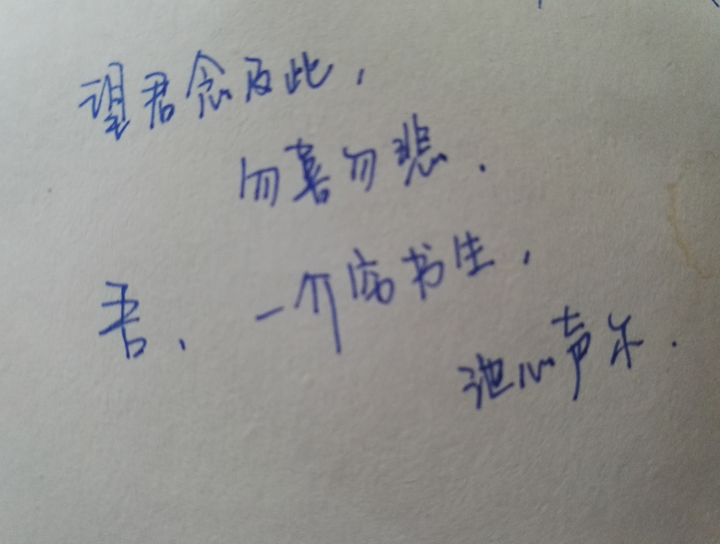 望君念及此，
勿喜勿悲.
吾、一介病书生，
泄心声尔.